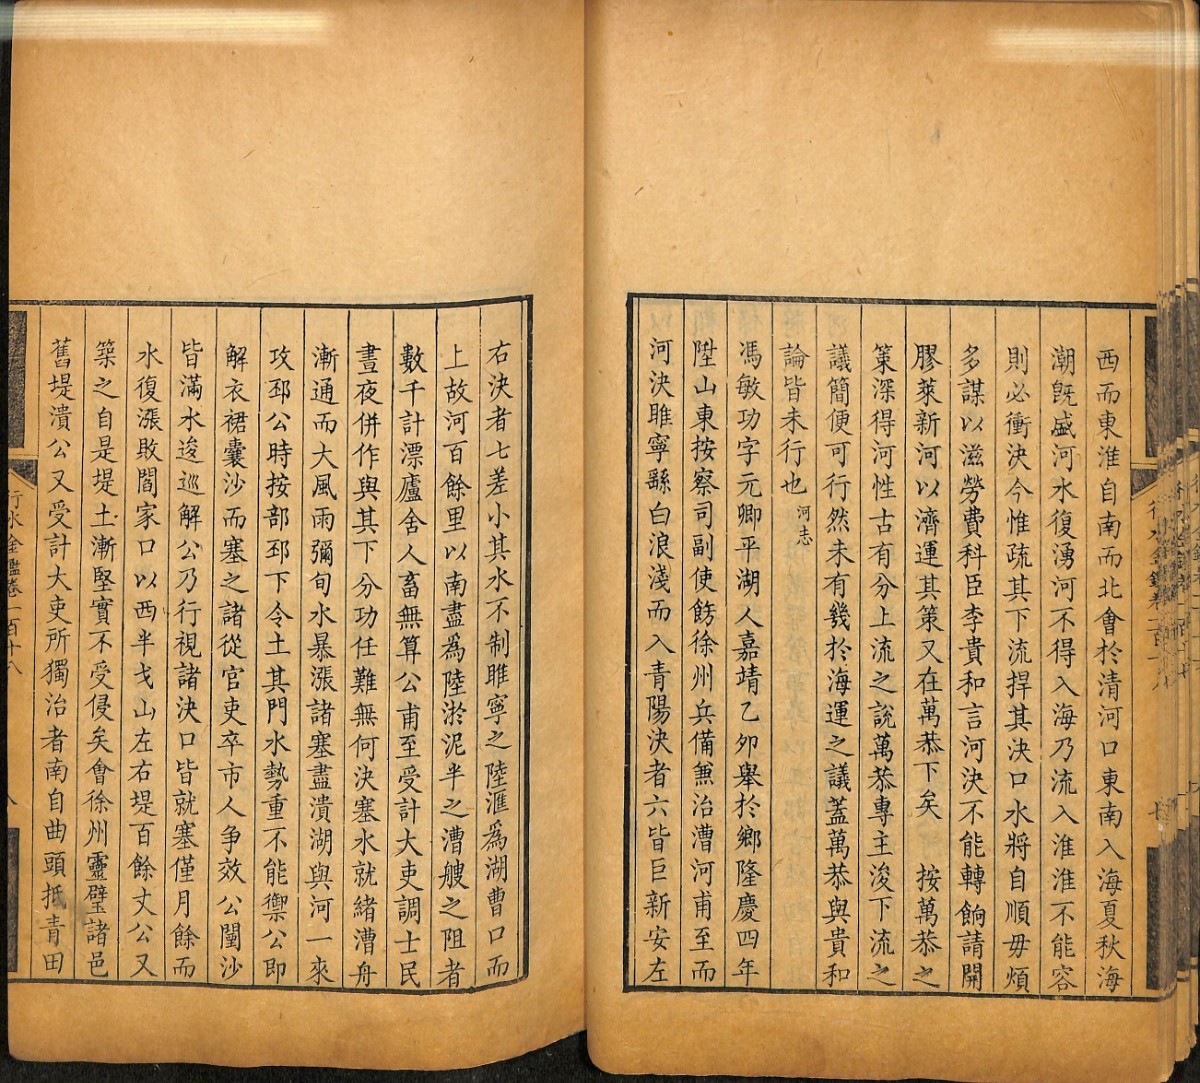 西而東淮自南而北會於清河口東南入海夏秋海
潮旣盛河水復湧河不得入海乃流入淮淮不能容
則必衝決今惟疏其下流捍其決口水將自順毋煩
多謀以滋勞費科臣李貴和言河決不能轉餉請開
膠萊新河以濟運其策又在萬恭下矣　按萬恭之
策深得河性古有分上流之說萬恭專主浚下流之
議簡便可行然未有幾於海運之議蓋萬恭與貴和
論皆未行也河志
馮敏功字元卿平湖人嘉靖乙夘舉於鄉隆慶四年
陞山東按察司副使飭徐州兵備兼治漕河甫至而
河決睢寧縣白浪淺而入青陽決者六皆巨新安左
右決者七差小其水不制睢寧之陸滙爲湖曹口而
上故河百餘里以南盡爲陸淤泥半之漕艘之阻者
數千計漂廬舍人畜無算公甫至受計大吏調士民
晝夜併作與其下分功任難無何決塞水就緒漕舟
漸通而大風雨彌旬水暴漲諸塞盡潰湖與河一來
攻邳公時按部邳下令土其門水勢重不能禦公即
解衣裙囊沙而塞之諸從官吏卒市人争效公闉沙
皆滿水逡巡解公乃行視諸決口皆就塞僅月餘而
水復漲敗閻家口以西半戈山左右堤百餘丈公又
築之自是堤土漸堅實不受侵矣會徐州靈璧諸邑
舊堤潰公又受計大吏所獨治者南自曲頭抵青田
行水金鑑卷一百十八
八